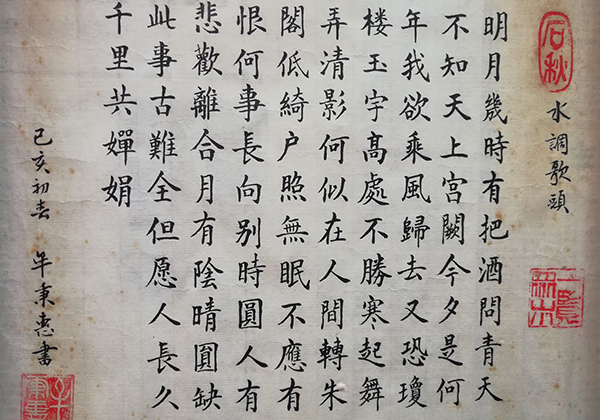 石秋
水調歌頭
明月幾時有把酒問青天
不知天上宮闕今夕是何
年我欲乘風歸去又恐瓊
楼玉宇高處不勝寒起舞
弄清影何似在人間轉朱
閣低綺户照無眠不應有
恨何事長向别時圓人有
悲歡離合月有陰晴圓缺
此事古難全但愿人長久
千里共嬋娟
己亥初春 秉惠書